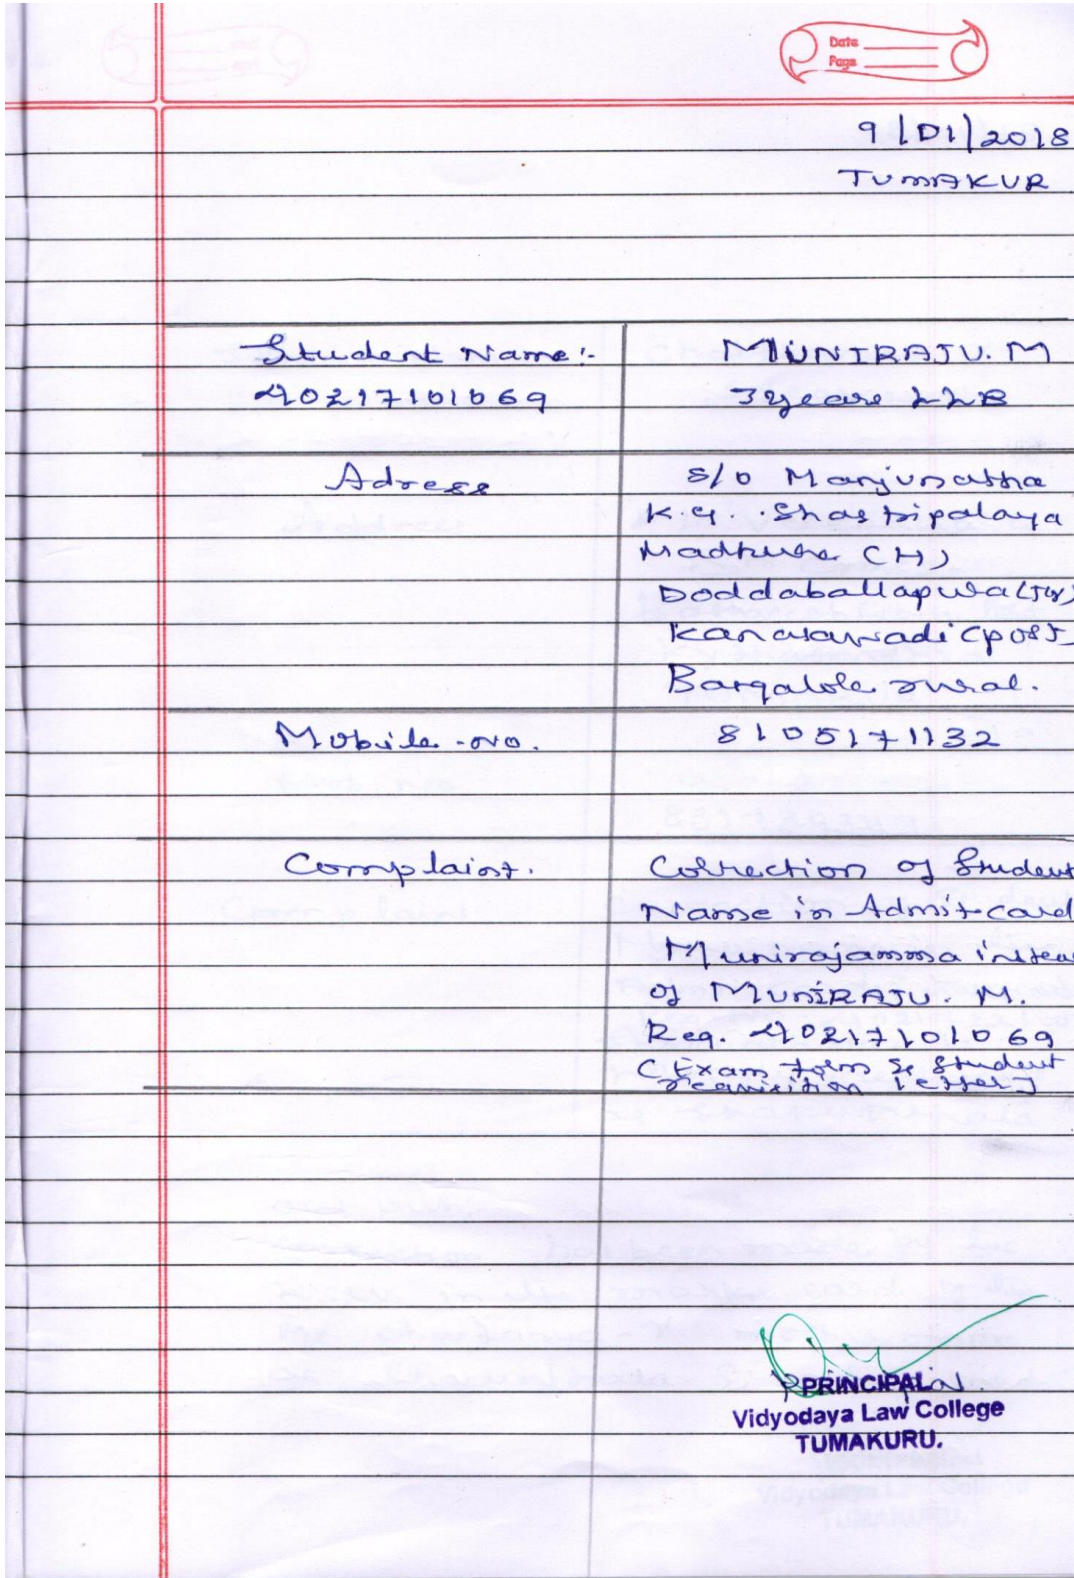 Date
Page
9/01/2018
TUMAKUR
Student Name:- MUNIRAJU. M
40217101069 3 years LLB
Adress S/o Manjunatha
K.G. Shastripalaya
Madhure (H)
Doddaballapura
Kanasawadi (post
Bangalole rural.
Mobile-no. 8105171132
Complaint. Correction of Student
Name in Admit-card
Munirajamma instea
of MUNIRAJU. M.
Reg. 40217101069
(Exam form & Student
requisition letter)
PRINCIPAL
Vidyodaya Law College
TUMAKURU.